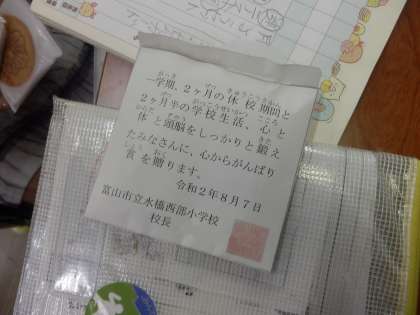 一学期、2ヶ月の休校期間と
2ヶ月半の学校生活、心と
体と頭脳をしっかりと鍛え
たみなさんに、心からがんばり
賞を贈ります。
令和2年8月7日
富山市立水橋西部小学校
校長